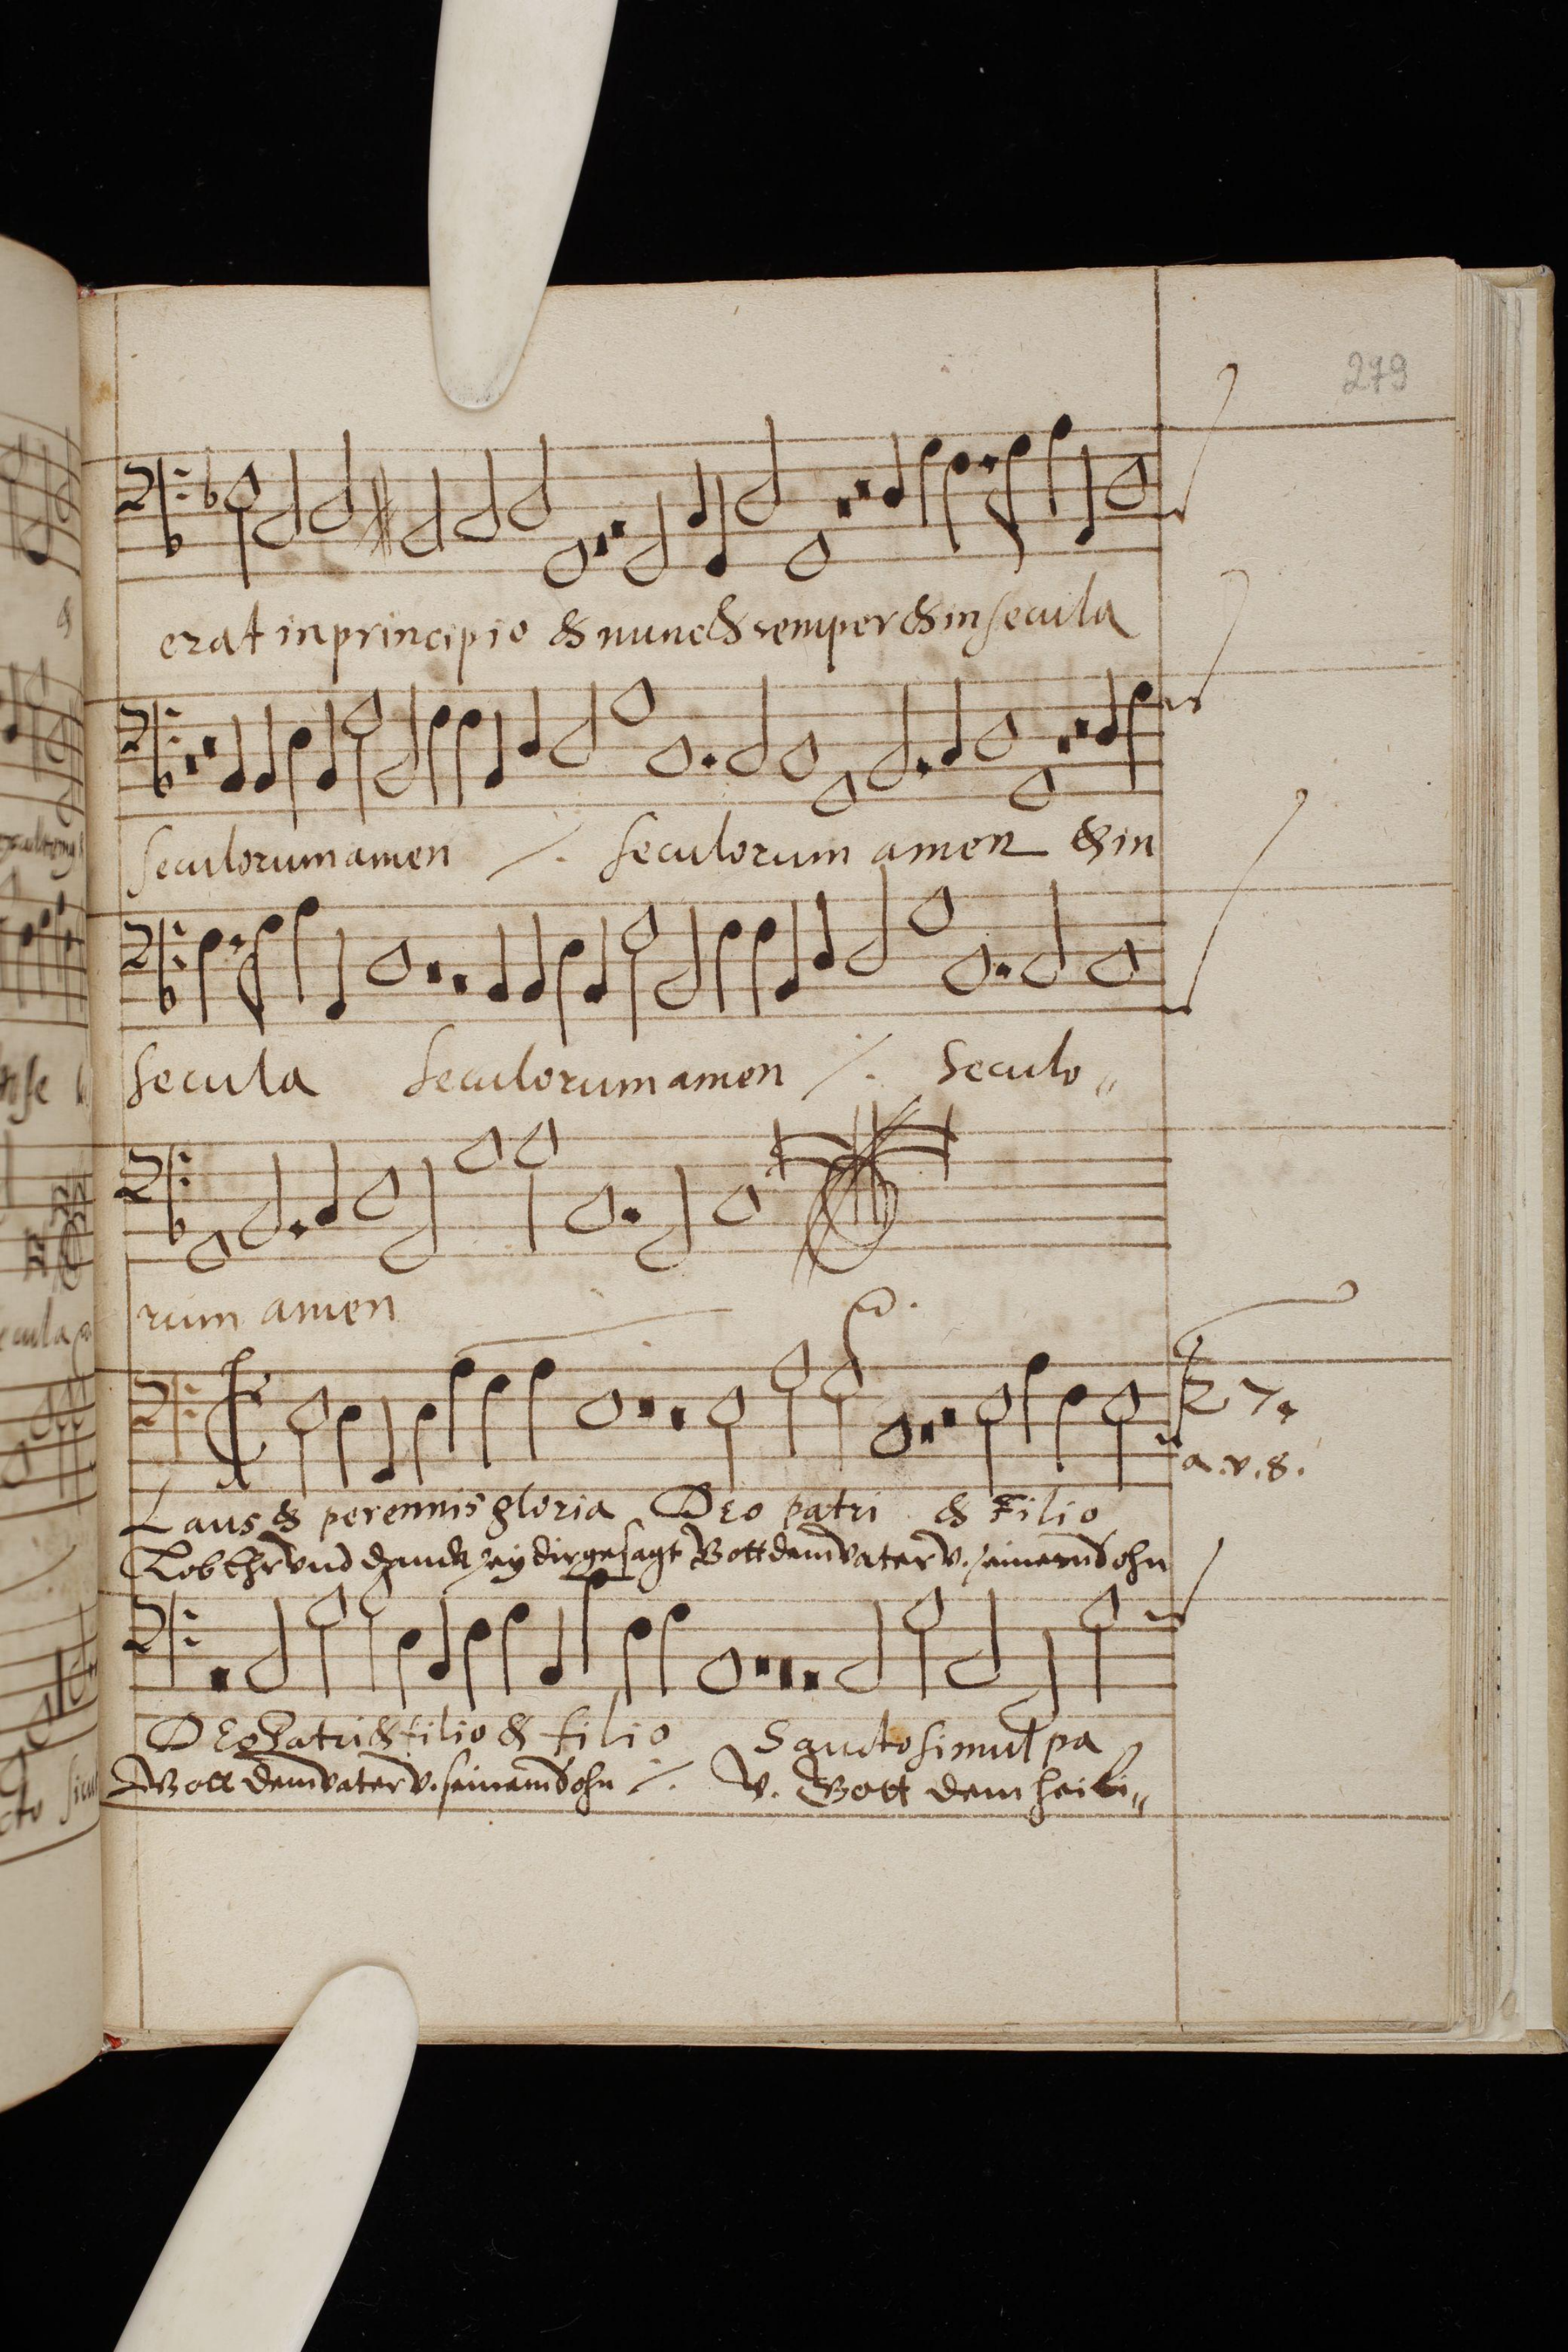 279
erat in principio & nunc & semper & in secula
seculorum amen ·/. seculorum amen & in
secula seculorum amen ·/. Seculo„
rum amen
27.
a. v. 8.
Laus & perennis gloria Deo patri & Filio
Lob Ehr vnd danck sey dir gesagt Gott dem vater v. seinem Sohn
Deo Patri & filio & filio Sancto simul pa
Gott dem vater v. seinem Sohn ·/. v. Gott dem heili„